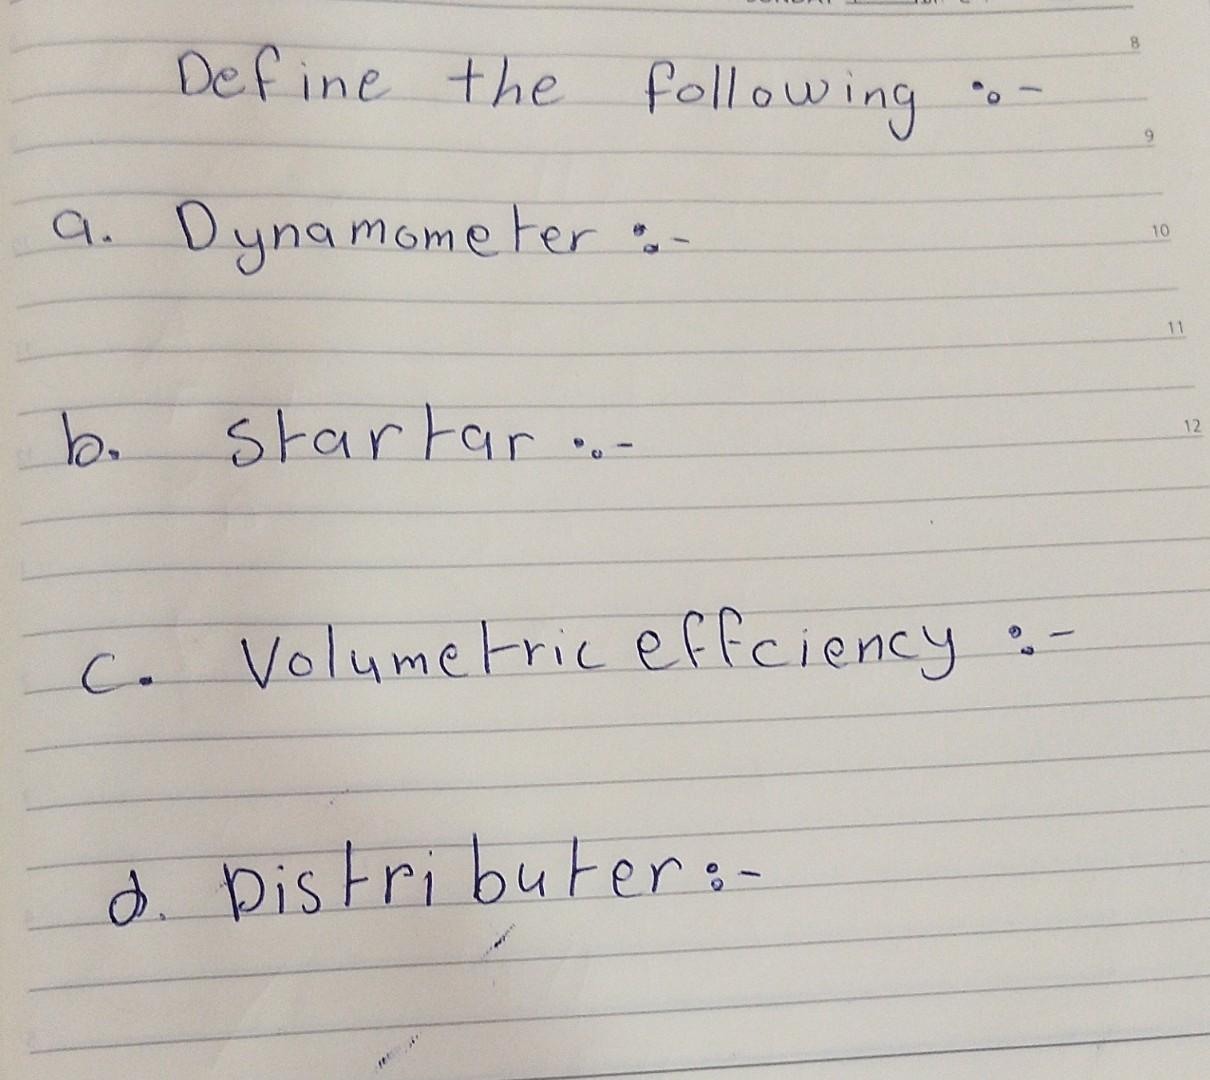 8
Define the following :-
9
a. Dynamometer :-
10
11
b. Startar :-
12
c. Volumetric effciency :-
d. Distributer :-